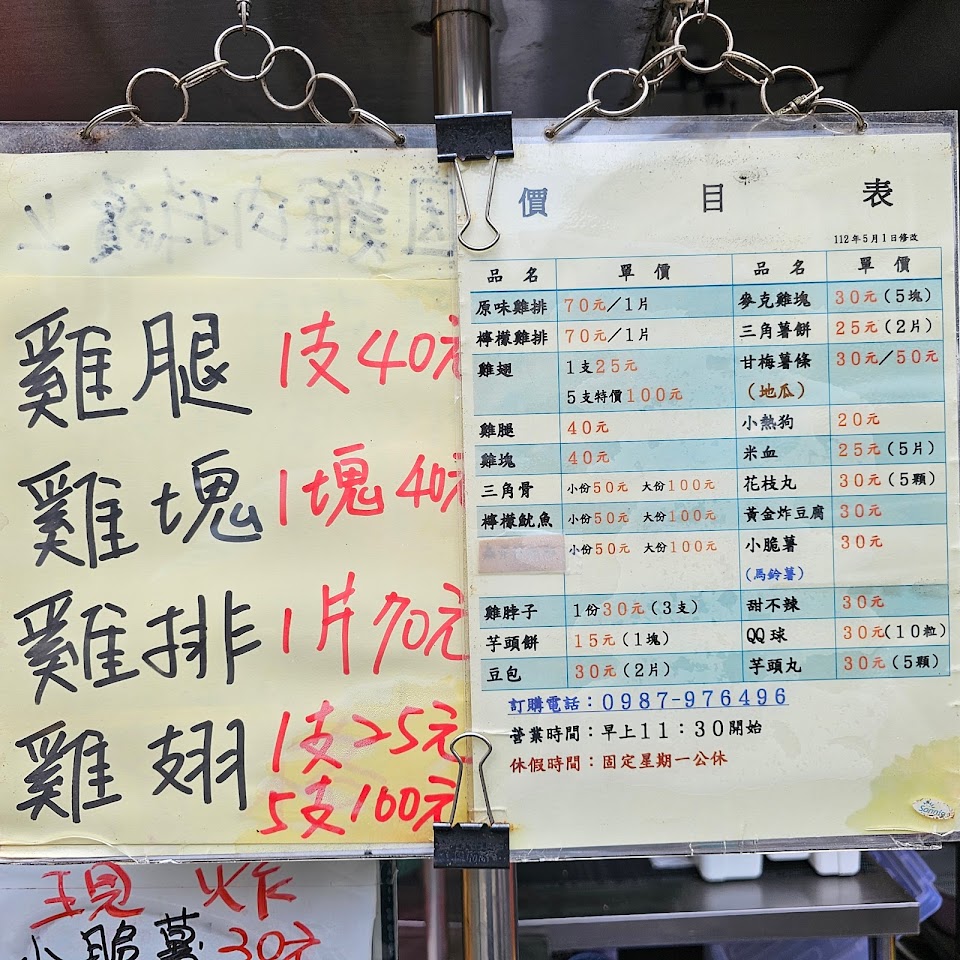 雞腿 1支40元
雞塊 1塊40元
雞排 1片70元
雞翅 1支25元
5支100元
現炸
小脆薯30元
價目表
112年5月1日修改
品名 單價 品名 單價
原味雞排 70元/1片 麥克雞塊 30元(5塊)
檸檬雞排 70元/1片 三角薯餅 25元(2片)
雞翅 1支25元 甘梅薯條 30元/50元
5支特價100元 (地瓜)
雞腿 40元 小熱狗 20元
雞塊 40元 米血 25元(5片)
三角骨 小份50元 大份100元 花枝丸 30元(5顆)
檸檬魷魚 小份50元 大份100元 黃金炸豆腐 30元
小份50元 大份100元 小脆薯 30元
(馬鈴薯)
雞脖子 1份30元(3支) 甜不辣 30元
芋頭餅 15元(1塊) QQ球 30元(10粒)
豆包 30元(2片) 芋頭丸 30元(5顆)
訂購電話:0987-976496
營業時間:早上11:30開始
休假時間:固定星期一公休